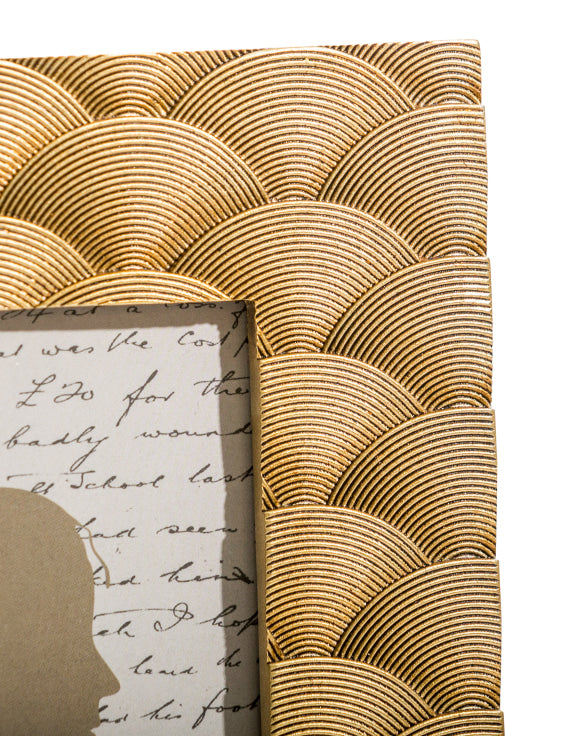 at a loss. of
at was the Cost
£20 for the
badly wound
at School last
had seen
had him
I hop
heard he
had his foot